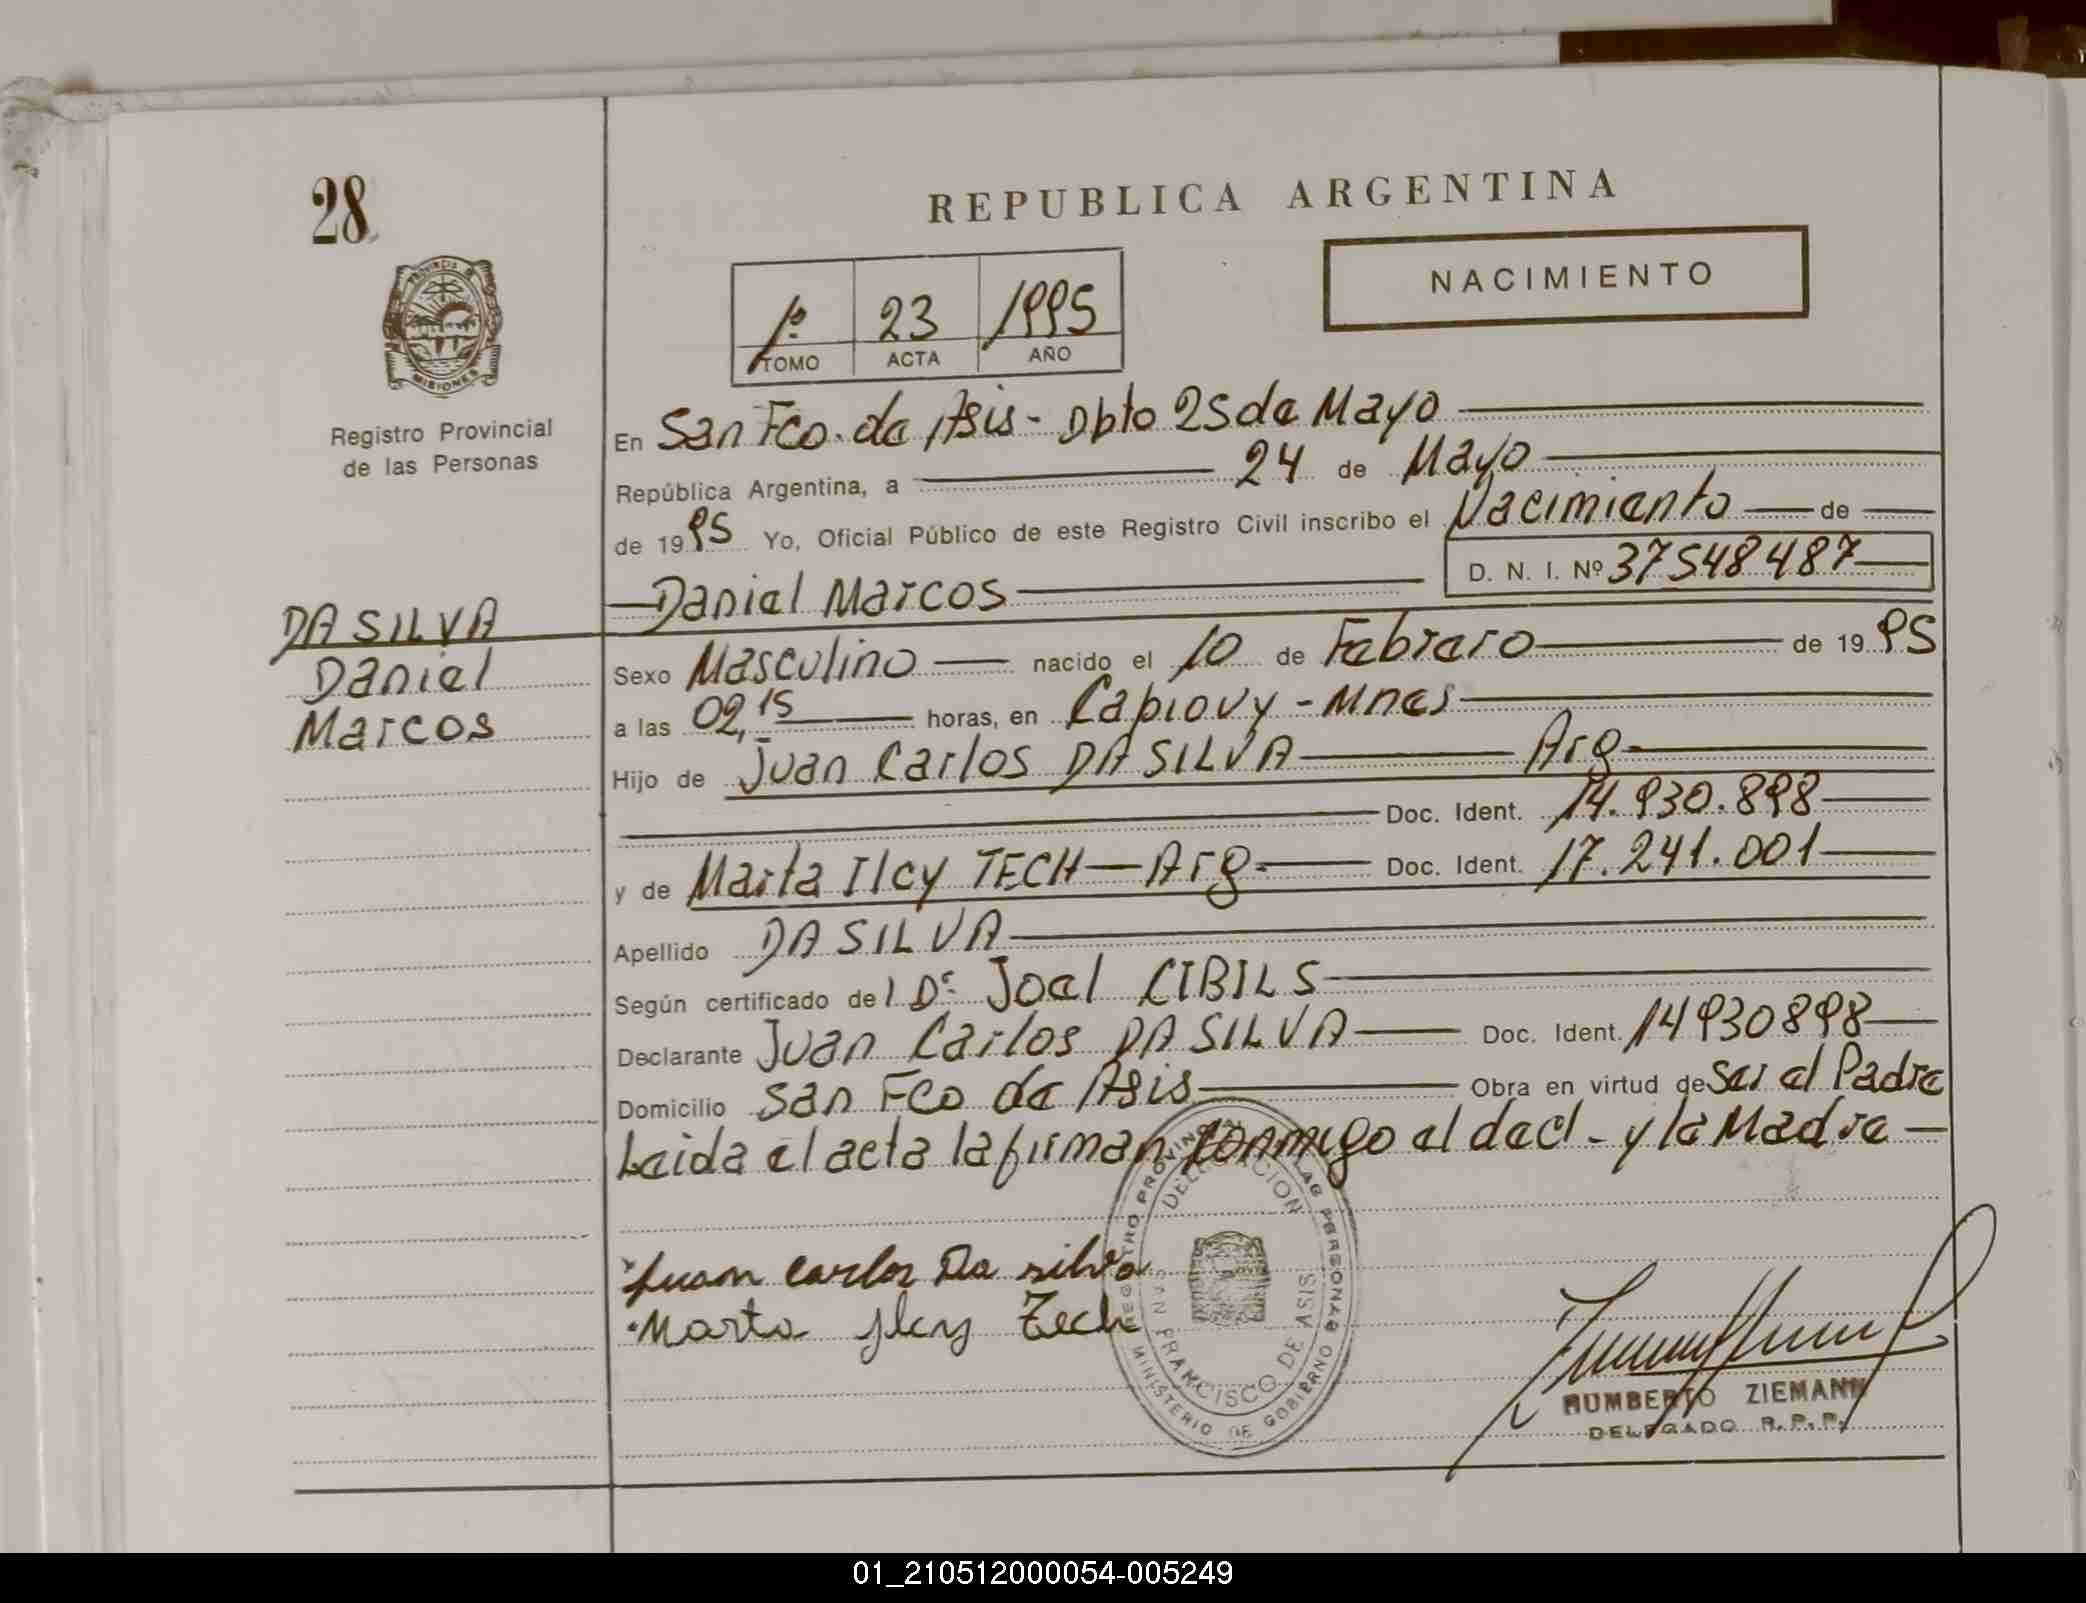 28
REPUBLICA ARGENTINA
NACIMIENTO
PROVINCIA DE
MISIONES
Registro Provincial
de las Personas
1º 23 1995
TOMO ACTA AÑO
En San Fco. de Asis - Dpto 25 de Mayo
República Argentina, a 24 de Mayo
de 1995 Yo, Oficial Público de este Registro Civil inscribo el Nacimiento de
D. N. I. Nº 37548487
Daniel Marcos
DA SILVA
Daniel
Marcos
Sexo Masculino nacido el 10 de Febrero de 1995
a las 02,15 horas, en Capiovy - Mnes
Hijo de Juan Carlos DA SILVA Arg
Doc. Ident. 14.930.898
y de Marta Ilcy TECH - Arg. Doc. Ident. 17.241.001
Apellido DA SILVA
Según certificado del Dr. Joel CIBILS
Declarante Juan Carlos DA SILVA Doc. Ident. 14930898
Domicilio San Fco de Asis Obra en virtud de Ser el Padre
Leida el acta la firman conmigo el decl - y la Madre
Juan Carlos Da silva
Marta Ilcy Tech
REGISTRO PROVINCIAL DE LAS PERSONAS
MINISTERIO DE GOBIERNO
DELEGACION
SAN FRANCISCO DE ASIS
HUMBERTO ZIEMANN
DELEGADO R.P.P.
01_210512000054-005249